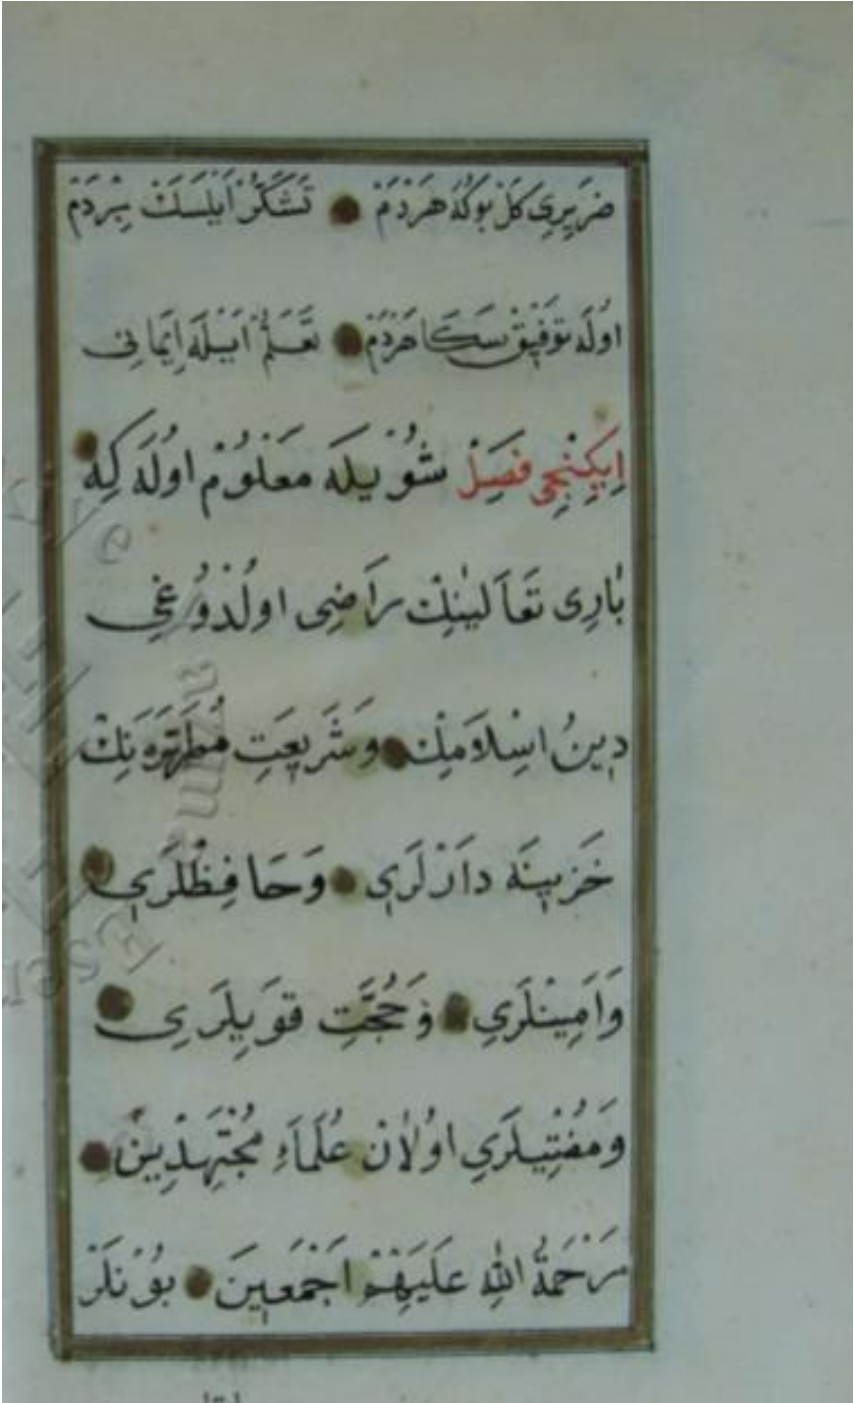 ضَرِيرِى كَلْ بُوكُهْ هَرْدَمْ ● تَشَكُّرْ اَيْلَسَكْ بِرْدَمْ
اوُلَه تَوْفِيقْ سَكَا هَرْدَمْ ● تَعَلُّمْ اَيْلَه اِيمَانِى
اِيكِنْجِى فَصِلْ شُوْيلَه مَعْلُومْ اوُلَه كِه ●
بَارِى تَعَالَينِكْ رَاضِى اولْدُوغِى
دِينُ اسِلاَمِكْ ● وَشَرِيعَتِ مُطَهَّرَه نِكْ
خَزِينَه دَارْلَرِى ● وَحَافِظْلَرِى ●
وَاَمِينْلَرِى ● وَحُجَّتِ قَوِيلَرِى ●
وَمُفْتِيلَرِى اوُلاَنْ عُلَمَاءِ مُجْتَهِدِينْ ●
رَحْمَةُ اللهِ عَلَيْهِمْ اَجْمَعِينَ ● بُونْلَرْ